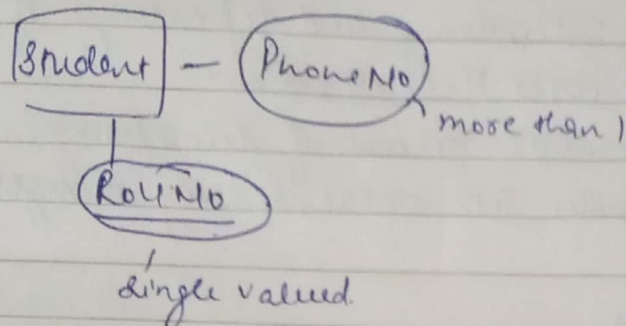 Student
PhoneNo
more than 1
RollNo
single valued.